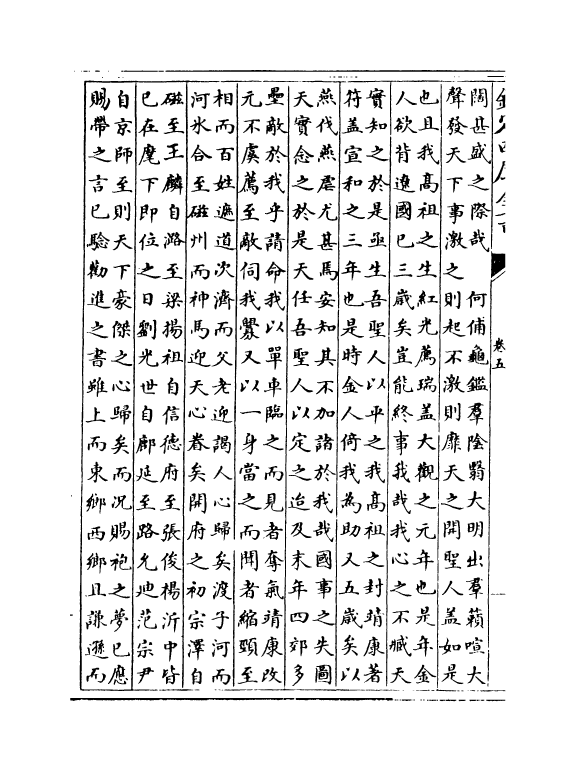 欽定四庫全書
卷五
闊甚盛之際哉　何俌龜鑑羣陰翳大明出羣籟喧大
聲發天下事激之則起不激則靡天之開聖人盖如是
也且我髙祖之生紅光薦瑞盖大觀之元年也是年金
人欲背遼國已三歳矣豈能終事我哉我心之不臧天
實知之於是亟生吾聖人以平之我髙祖之封靖康著
符盖宣和之三年也是時金人倚我為助又五歳矣以
燕伐燕虐尤甚焉安知其不加諸於我哉國事之失圖
天實念之於是天任吾聖人以定之迨及末年四郊多
壘敵於我乎請命我以單車臨之而見者奪氣靖康改
元不虞薦至敵伺我釁又以一身當之而聞者縮頸至
相而百姓遮道次濟而父老迎謁人心歸矣渡子河而
河氷合至磁州而神馬迎天心眷矣開府之初宗澤自
磁至王麟自潞至梁揚祖自信德府至張俊楊沂中皆
已在麾下即位之日劉光世自鄜延至路允迪范宗尹
自京師至則天下豪傑之心歸矣而況賜袍之夢已應
賜帶之言已驗勸進之書雖上而東鄉西鄉且謙遜而